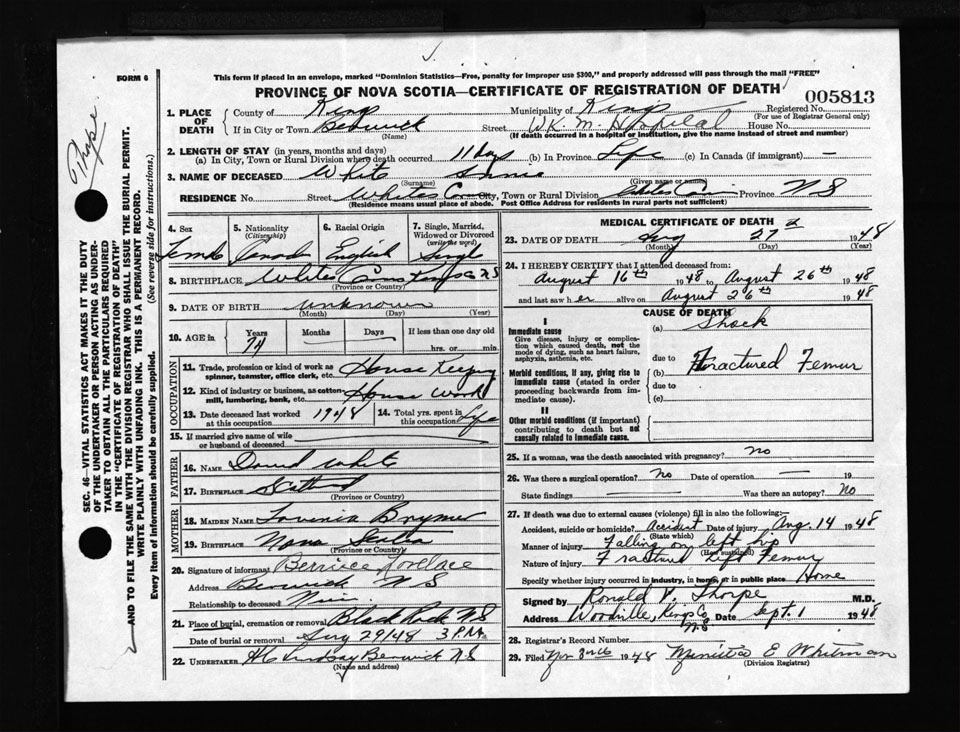 FORM 6
This form if placed in an envelope, marked "Dominion Statistics—Free, penalty for improper use $300," and properly addressed will pass through the mail "FREE"
PROVINCE OF NOVA SCOTIA—CERTIFICATE OF REGISTRATION OF DEATH
005813
Thorpe
SEC. 46—VITAL STATISTICS ACT MAKES IT THE DUTY
OF THE UNDERTAKER OR PERSON ACTING AS UNDER-
TAKER TO OBTAIN ALL THE PARTICULARS REQUIRED
IN THE "CERTIFICATE OF REGISTRATION OF DEATH"
AND TO FILE THE SAME WITH THE DIVISION REGISTRAR WHO SHALL ISSUE THE BURIAL PERMIT.
WRITE PLAINLY WITH UNFADING INK. THIS IS A PERMANENT RECORD.
Every item of information should be carefully supplied. (See reverse side for instructions.)
1. PLACE OF DEATH
County of Kings Municipality of Kings Registered No.
(For use of Registrar General only)
If in City or Town Berwick Street W K M Hospital House No.
(Name) (If death occurred in a hospital or institution, give the name instead of street and number)
2. LENGTH OF STAY (in years, months and days)
(a) In City, Town or Rural Division where death occurred 11 days (b) In Province Life (c) In Canada (if immigrant) —
3. NAME OF DECEASED White Annie
(Surname) (Given name or names)
RESIDENCE No. Street Whites Corner City, Town or Rural Division Whites Corner Province N S
(Residence means usual place of abode. Post Office Address for residents in rural parts not sufficient)
4. Sex 5. Nationality (Citizenship) 6. Racial Origin 7. Single, Married, Widowed or Divorced (write the word)
Female Canada English Single
8. BIRTHPLACE Whites Corner Kings Co N S
(Province or Country)
9. DATE OF BIRTH unknown
(Month) (Day) (Year)
10. AGE in Years 74 Months Days If less than one day old
hrs. or min.
OCCUPATION
11. Trade, profession or kind of work as spinner, teamster, office clerk, etc. House Keeping
12. Kind of industry or business, as cotton mill, lumbering, bank, etc. House Work
13. Date deceased last worked at this occupation 1948 14. Total yrs. spent in this occupation Life
15. If married give name of wife or husband of deceased
FATHER
16. NAME David White
17. BIRTHPLACE Scotland
(Province or Country)
MOTHER
18. MAIDEN NAME Lovenia Brymer
19. BIRTHPLACE Nova Scotia
(Province or Country)
20. Signature of informant Berniece Lovelace
Address Berwick N S
Relationship to deceased
21. Place of burial, cremation or removal Black Rock N S
Date of burial or removal Aug 29/48 3 P.M.
22. UNDERTAKER Lindsay Berwick N S
(Name and address)
MEDICAL CERTIFICATE OF DEATH
23. DATE OF DEATH Aug 27th 1948
(Month) (Day) (Year)
24. I HEREBY CERTIFY that I attended deceased from:
August 16th 1948 to August 26th 1948
and last saw her alive on August 26th 1948
CAUSE OF DEATH
I
Immediate cause
Give disease, injury or complication which caused death, not the mode of dying, such as heart failure, asphyxia, asthenia, etc.
(a) Shock
due to
Morbid conditions, if any, giving rise to immediate cause (stated in order proceeding backwards from immediate cause).
(b) Fractured Femur
due to
(c)
II
Other morbid conditions (if important) contributing to death but not causally related to immediate cause.
25. If a woman, was the death associated with pregnancy? no
26. Was there a surgical operation? No Date of operation — 19
State findings Was there an autopsy? No
27. If death was due to external causes (violence) fill in also the following:—
Accident, suicide or homicide? accident Date of injury Aug. 14 1948
(State which)
Manner of injury Falling on left hip
(How sustained)
Nature of injury Fractured Left Femur
Specify whether injury occurred in industry, in home, or in public place Home
Signed by Ronald V. Thorpe M.D.
Address Woodville, Kings Co. N.S Date Sept. 1 1948
28. Registrar's Record Number
29. Filed 1948 E Whitman
(Division Registrar)